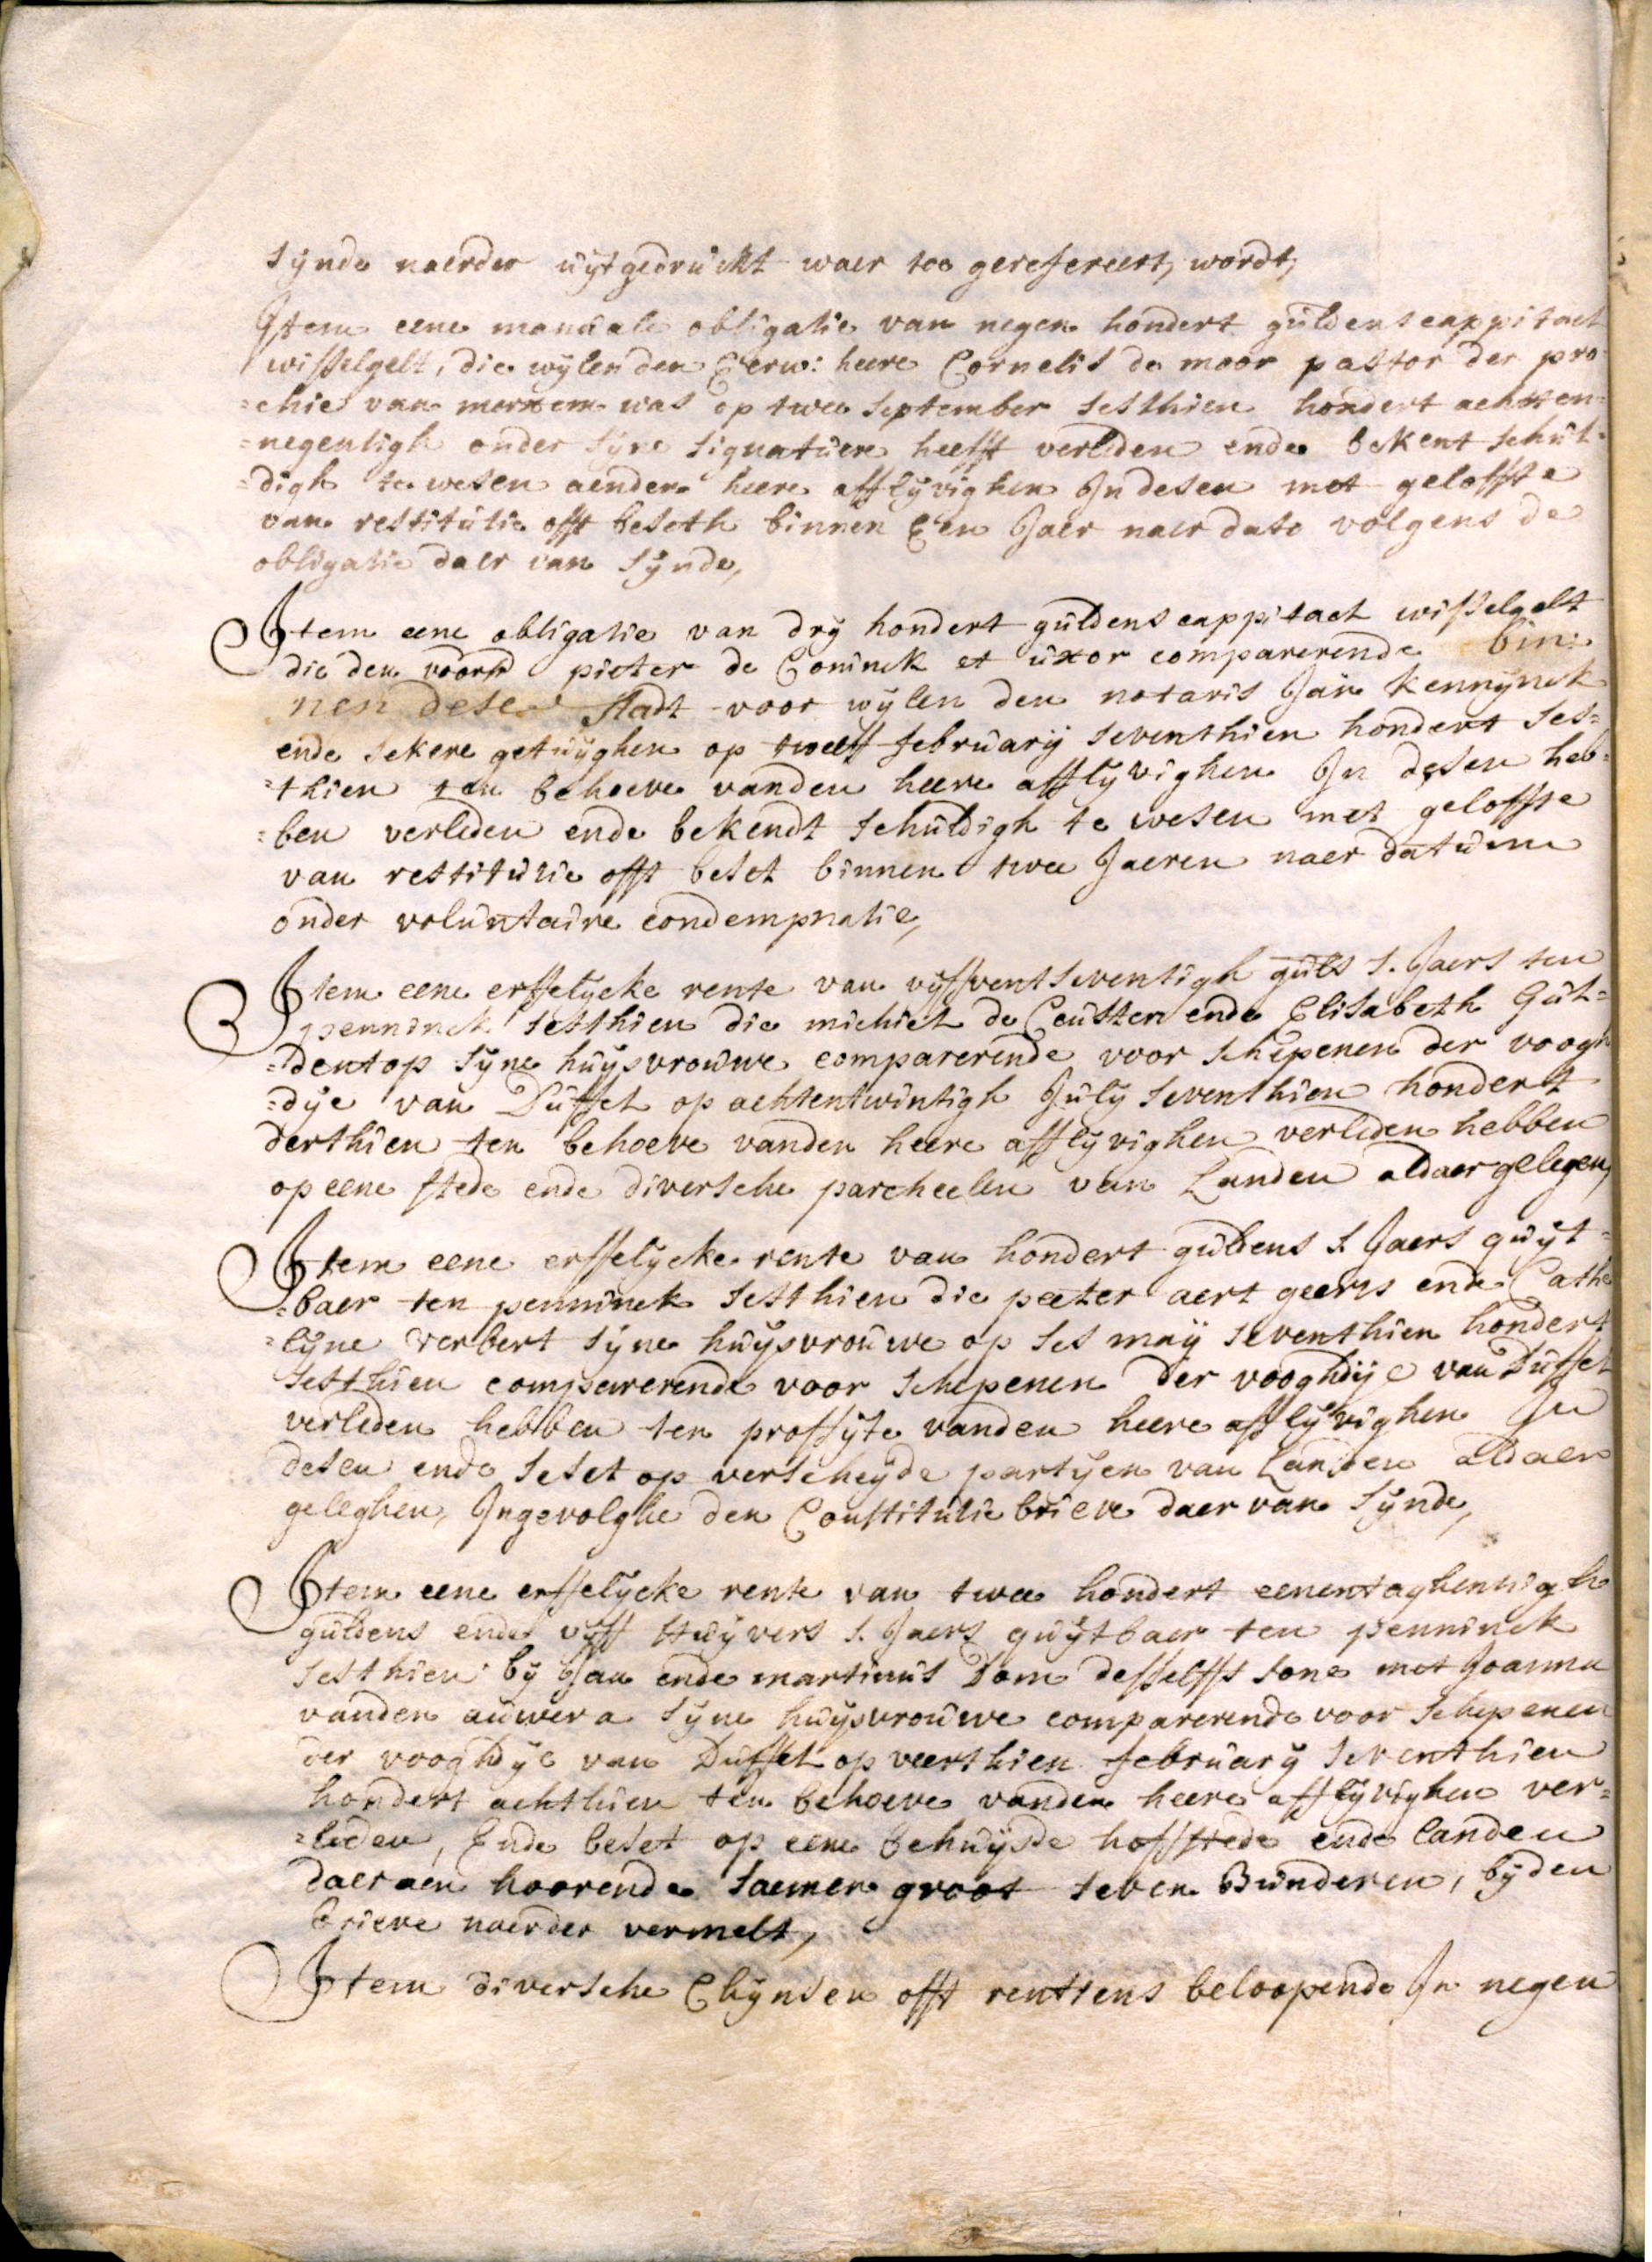 synde naerder uijtgedruckt waer toe gerefereert, wordt,
Item eene manuale obligatie van negen hondert guldens cappitael
wisselgelt, die wylen den Eerw: heere Cornelis de moor pastor der pro-
=chie van merxem was op twee September sesthien hondert achten=
=negentigh onder syne signature heefft verleden ende bekent schul=
=digh te wesen aenden heere afflyvighen In desen met geloffte
van restitutie offt beseth binnen Een Jaer naer dato volgens de
obligatie daer van synde,
Item eene obligatie van dry hondert guldens cappitael wisselgelt
die den voors pieter de Coninck et uxor comparerende bin=
nen dese stadt voor wylen den notaris Jan Kennynck
ende sekere getuyghen op tweeff februarij seventhien hondert ses=
=thien ten behoeve vanden heere afflyvighen In desen heb=
=ben verleden ende bekendt schuldigh te wesen met geloffte
van restitutie offt beset binnen twee Jaeren naer datum
onder voluntaire condempnatie,
Item eene erffelycke rente van vyffventseventigh guls s. Jaers ten
penninck sesthien die michiel de Ceuster ende Elisabeth Gul=
=dentop syne huysvrouwe comparerende voor schepenen der voogh
=dye van Duffel op achtentwintigh July seventhien hondert
derthien ten behoeve vanden heere afflyvighen verleden hebben
op eene stede ende diversche parcheelen van Landen aldaer gelegen,
Item eene erffelycke rente van hondert guldens s. Jaers quyt=
=baer ten penninck sesthien die peeter aert geerts ende Cathe
=lyne verbert syne huysvrouwe op ses maij seventhien hondert
sesthien comparerende voor schepenen der vooghdije van Duffel
verleden hebben ten proffyte vanden heere afflyvighen In
desen ende beset op verscheyde partyen van Landen aldaer
geleghen, Ingevolghe den Constitutie brieve daer van synde,
Item eene erffelycke rente van twee hondert eenentaghentigh
guldens ende vyff stuyvers s. Jaers quytbaer ten penninck
sesthien by Jan ende martinus Dom desselffs sone met Joanna
vanden auwera syne huysvrouwe comparerende voor schepenen
der vooghdye van Duffel op veerthien february seventhien
hondert achthien ten behoeve vanden heere afflyvighen ver=
=leden, Ende beset op eene behuysde hoffstede ende landen
daer aen hoorende saemen groot seven Bunderen, byden
brieve naerder vermelt,
Item diversche Chynsen offt rentiens beloopende In negen